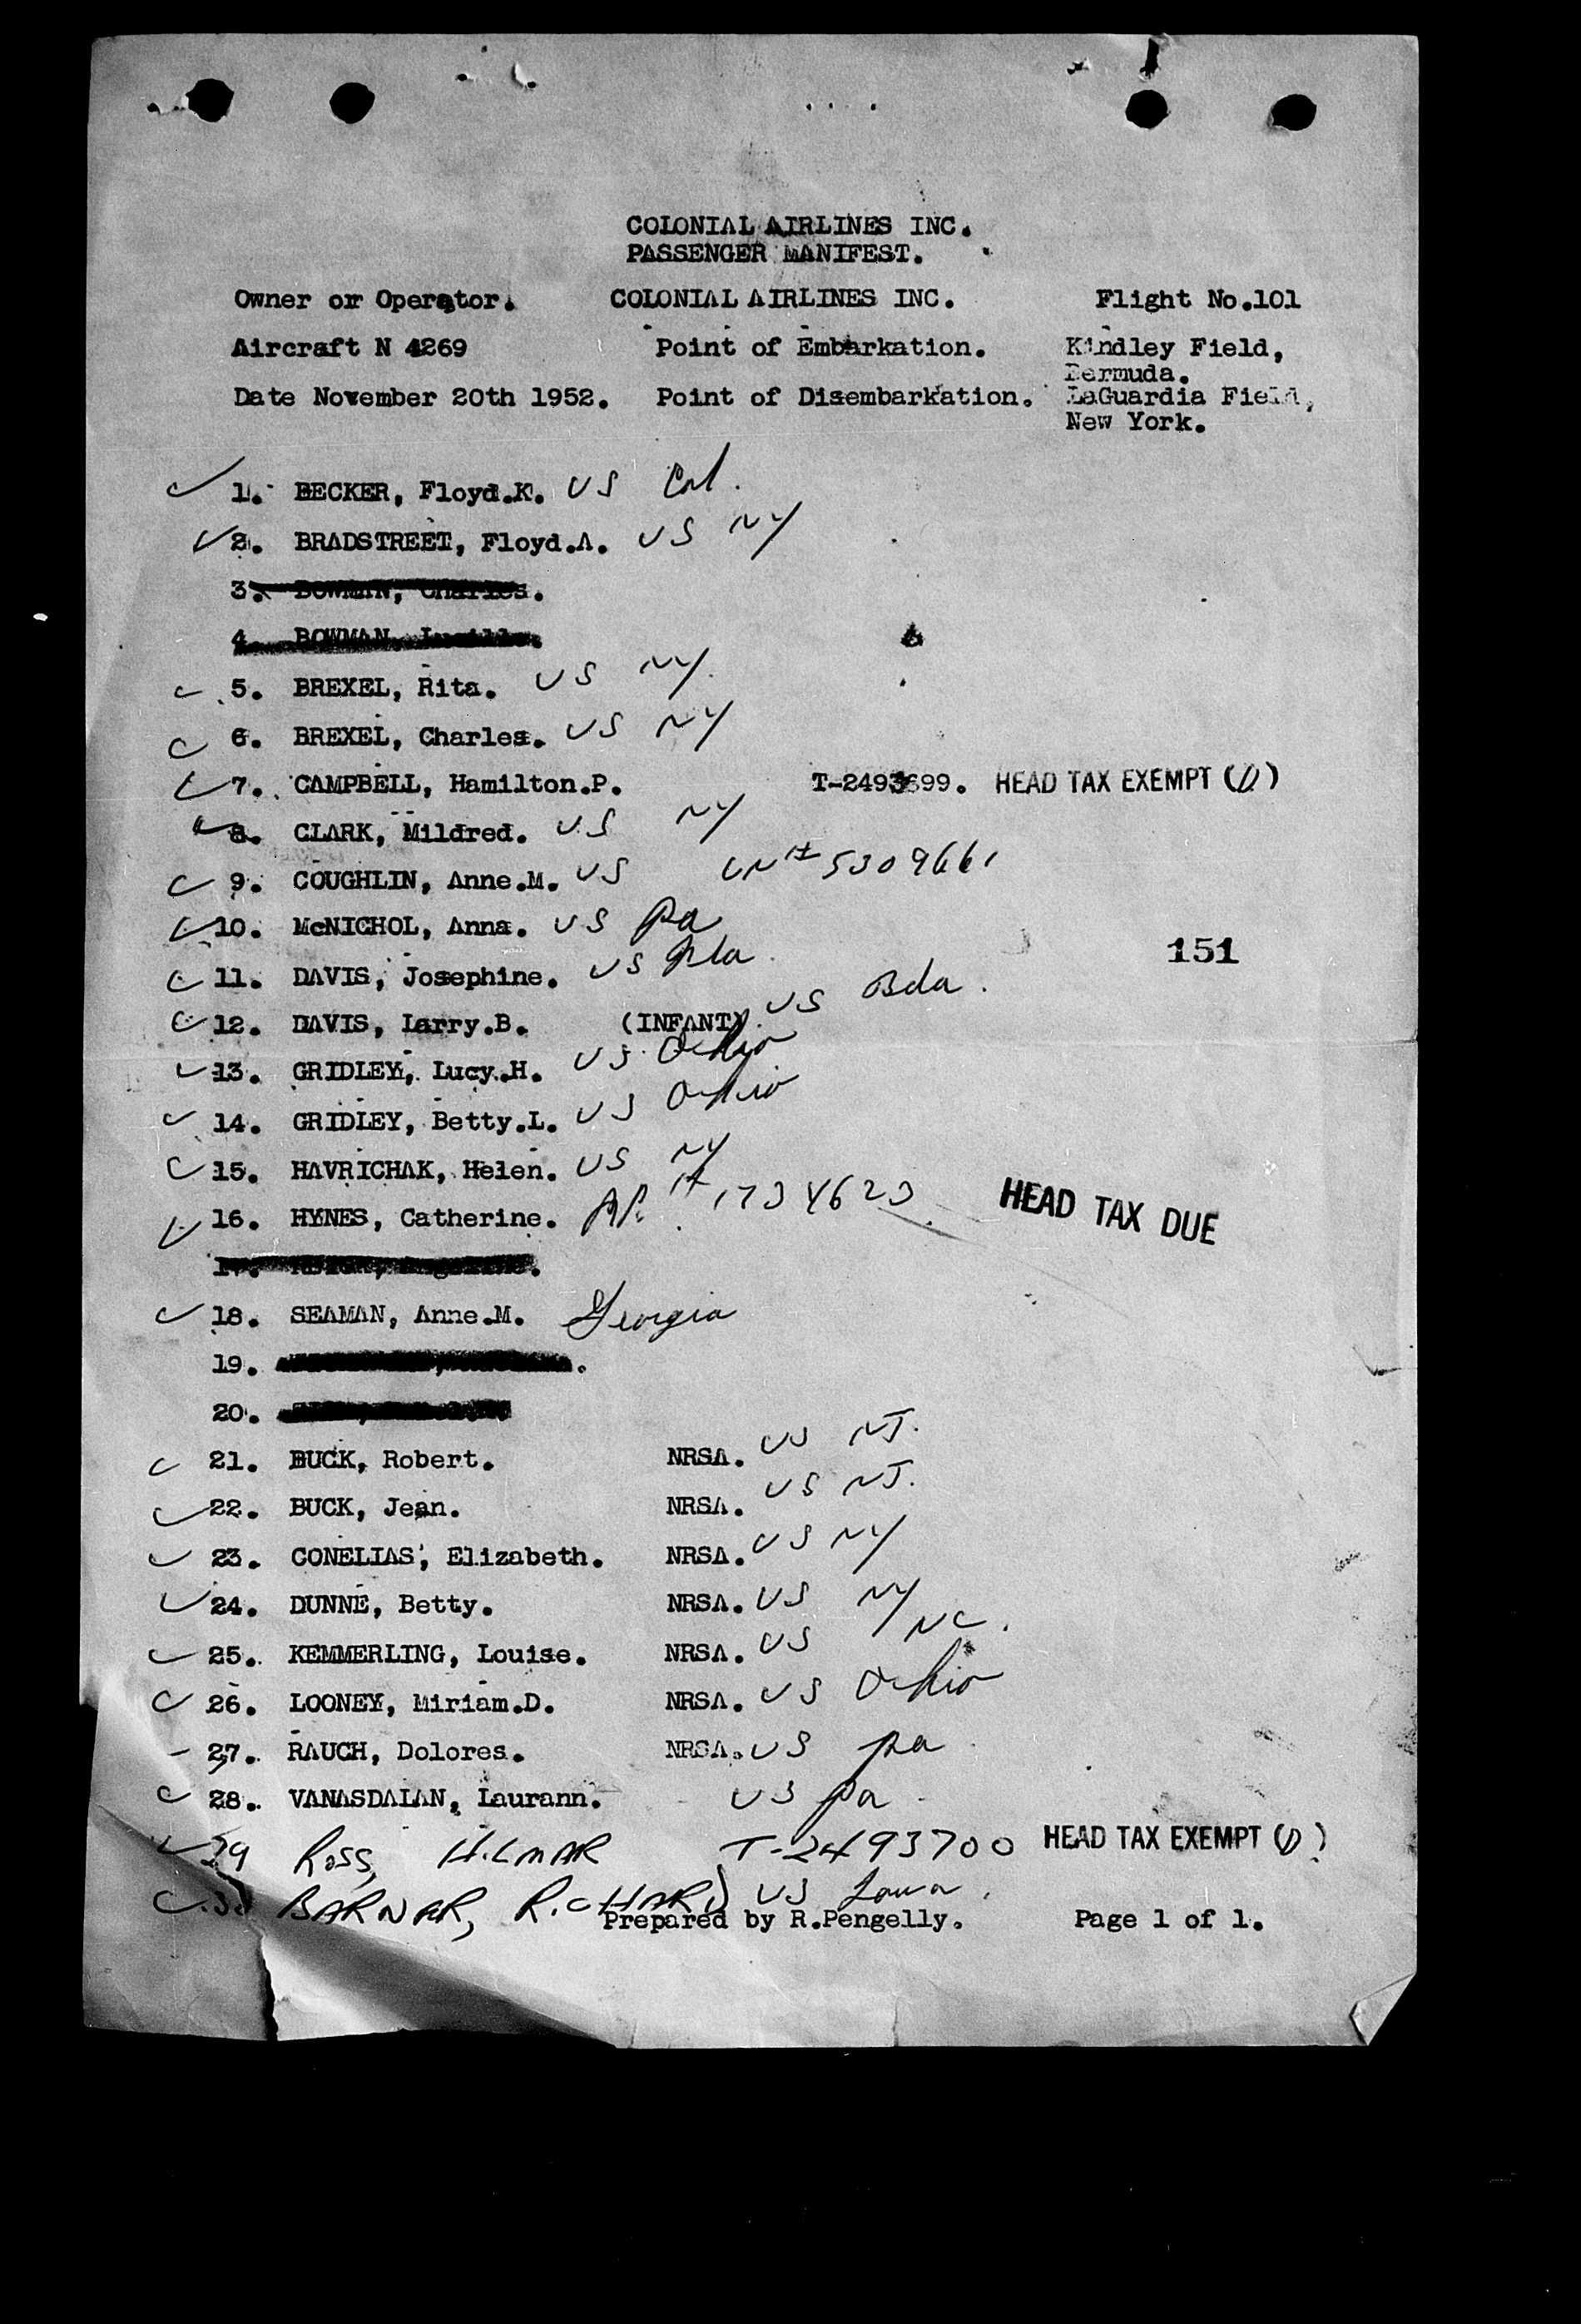 COLONIAL AIRLINES INC.
PASSENGER MANIFEST.
Owner or Operator. COLONIAL AIRLINES INC. Flight No.101
Aircraft N 4269 Point of Embarkation. Kindley Field,
Bermuda.
Date November 20th 1952. Point of Disembarkation. LaGuardia Field,
New York.
1. BECKER, Floyd.K. US Cal.
2. BRADSTREET, Floyd.A. US NY
3. BOWMAN, Charles.
4. BOWMAN, Lucille.
5. BREXEL, Rita. US NY.
6. BREXEL, Charles. US NY
7. CAMPBELL, Hamilton.P. T-2493699. HEAD TAX EXEMPT (D)
8. CLARK, Mildred. US NY
9. COUGHLIN, Anne.M. US CN# 5309661
10. McNICHOL, Anna. US Pa
151
11. DAVIS, Josephine. US Fla.
12. DAVIS, Larry.B. (INFANT). US Bda.
13. GRIDLEY, Lucy.H. US Ohio
14. GRIDLEY, Betty.L. US Ohio
15. HAVRICHAK, Helen. US NY
16. HYNES, Catherine. AR. # 1734623. HEAD TAX DUE
17.
18. SEAMAN, Anne.M. Georgia
19.
20.
21. BUCK, Robert. NRSA. US NJ.
22. BUCK, Jean. NRSA. US NJ.
23. CONELIAS, Elizabeth. NRSA. US NY
24. DUNNE, Betty. NRSA. US NY
25. KEMMERLING, Louise. NRSA. US NC.
26. LOONEY, Miriam.D. NRSA. US Ohio
27. RAUCH, Dolores. NRSA. US Pa
28. VANASDALAN, Laurann. US Pa
29 ROSS, HILMAR T-2493700 HEAD TAX EXEMPT (D)
30 BARNER, RICHARD US Iowa.
Prepared by R.Pengelly. Page 1 of 1.